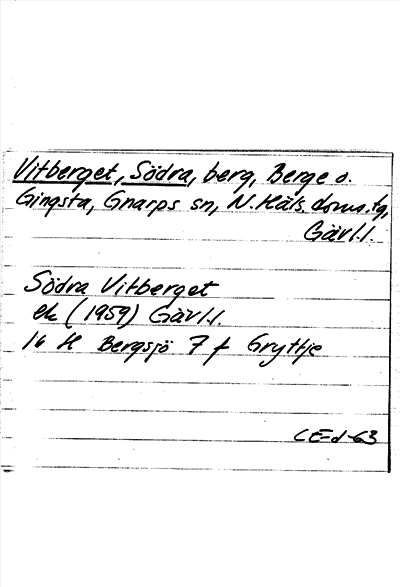 Vitberget, Södra, berg, Berge o.
Gingsta, Gnarps sn, N. Häls. doms.tg,
Gävl.l.
Södra Vitberget
ek (1959) Gävl.l.
16 H Bergsjö 7 f Gryttje
CE-d-63